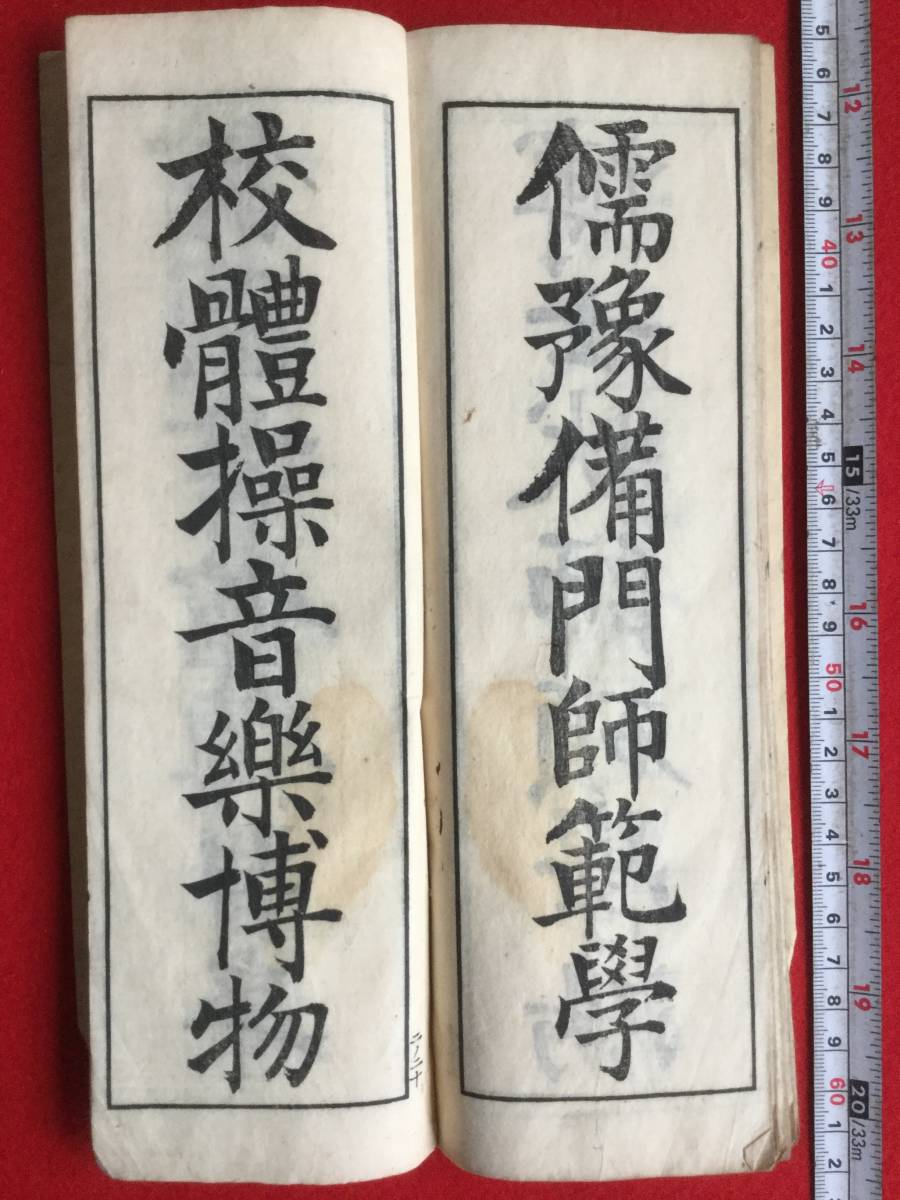 儒豫備門師範學
校體操音樂博物
二ノ二十
5
6
7
8
9
40
1
2
3
4
5
6
7
8
9
50
1
2
3
4
5
6
7
8
9
60
1
2
12
13
14
15/33m
16
17
18
19
20/33m